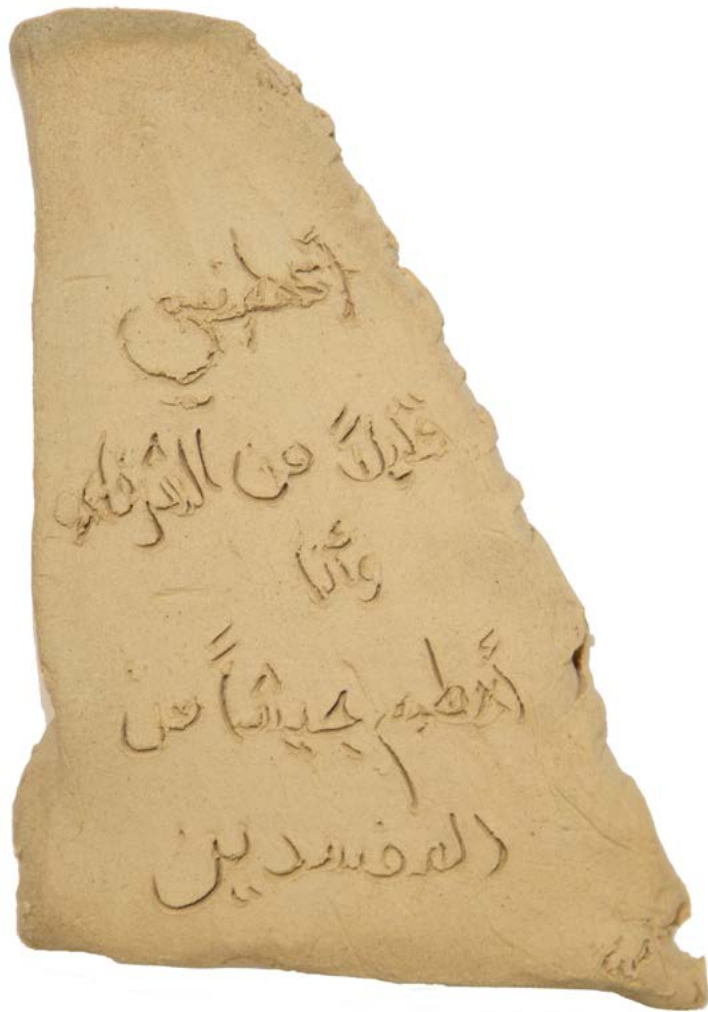 أعطني
قليلاً من الشرفاء
وأنا
أحطم جيشاً من
المفسدين